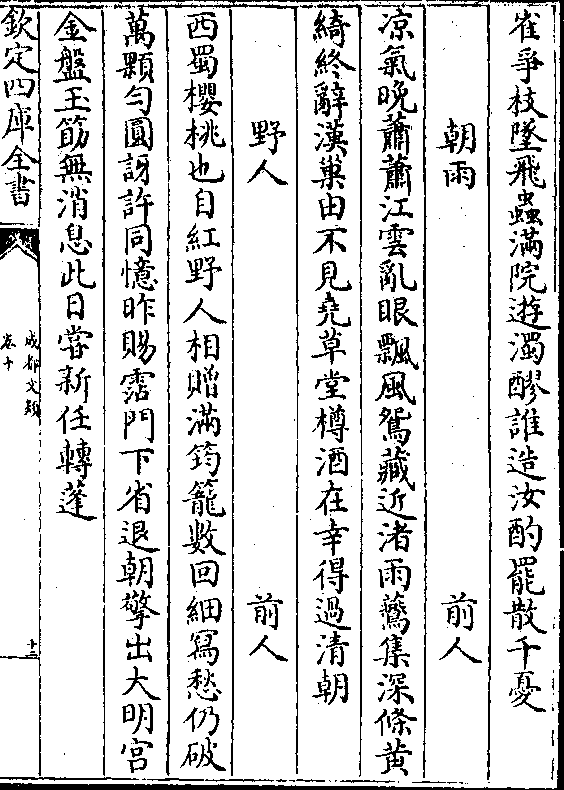 雀爭枝墜飛蟲滿院遊濁醪誰造汝酌罷散千憂
朝雨　前人
凉氣晚蕭蕭江雲亂眼飄風鴛藏近渚雨鷰集深條黄
綺終辭漢巢由不見堯草堂樽酒在幸得過清朝
野人　前人
西蜀櫻桃也自紅野人相贈滿筠籠數回細寫愁仍破
萬顆勻圓訝許同憶昨賜霑門下省退朝擎出大明宮
金盤玉筯無消息此日嘗新任轉蓬
欽定四庫全書
成都文類
卷十
十三